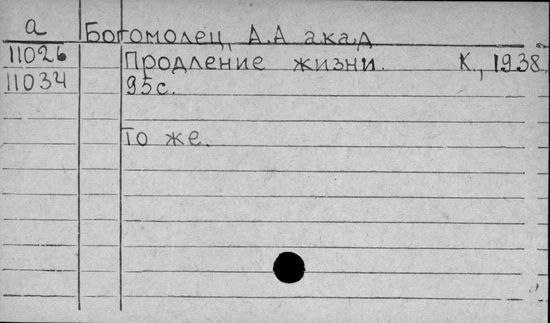 а Богомолец, А.А акад
11026 Продление жизни. К., 1938.
11034 95с.
То же.